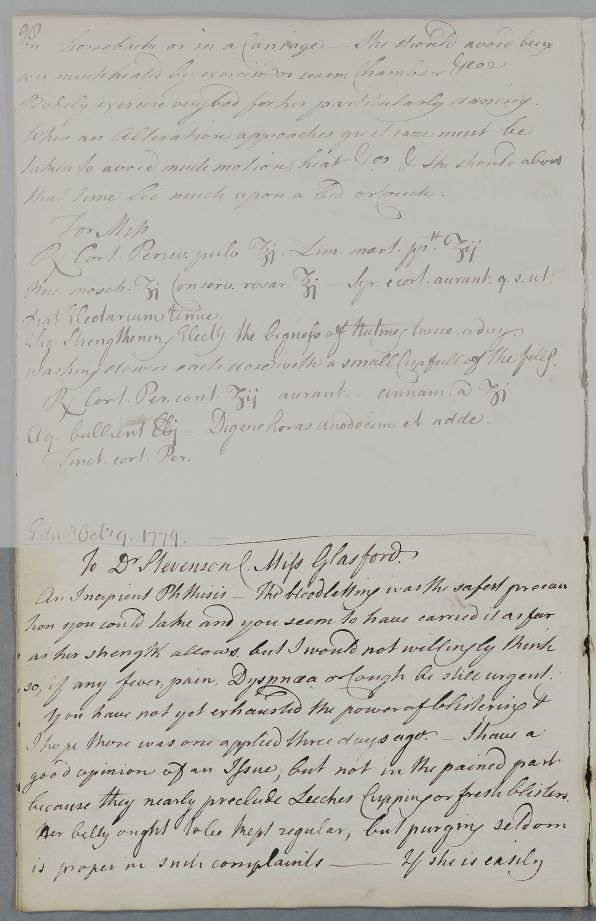 98
on horseback or in a Carriage — She should avoid being
over much heated by exercise or warm Chambers &ca
Bodily exercise very bad for her particularly dancing.
When an Alteration approaches great care must be
taken to avoid much motion, heat &ca & She should about
that time lie much upon a Bed or Couch.
For Miss
℞ Cort. Peruv. pulv. ℥j. Lim. mart. ppt. ʒij
Nuc. mosch. ʒj Conserv. rosar. ℥j — Syr. e cort. aurant. q. s. ut
fiat Electarium tenue.
Sig. Strengthening Electy. the bigness of Nutmeg twice a day
washing down each dose with a small Cupfull of the folg.
℞ Cort. Per. cont. ℥ij aurant. — cinnam. a ʒj
Aq. bullient ℔j — Digere horas duodecim et adde.
Tinct. cort. Per.
Edinr. Octr. 9. 1779.
To Dr Stevenson C. Miss Glasford.
An Incipient Phthisis — the bloodletting was the safest precau
tion you could take and you seem to have carried it as far
as her strength allows, but I would not willingly think
so, if any fever, pain, Dyspnœa or Cough be still urgent.
You have not yet exhausted the power of blistering &
I hope there was one applied three days ago. — I have a
good opinion of an Issue, but not in the pained part
because they nearly preclude Leeches Cupping or fresh blisters.
Her belly ought to be kept regular, but purging seldom
is proper in such complaints — If she is easily